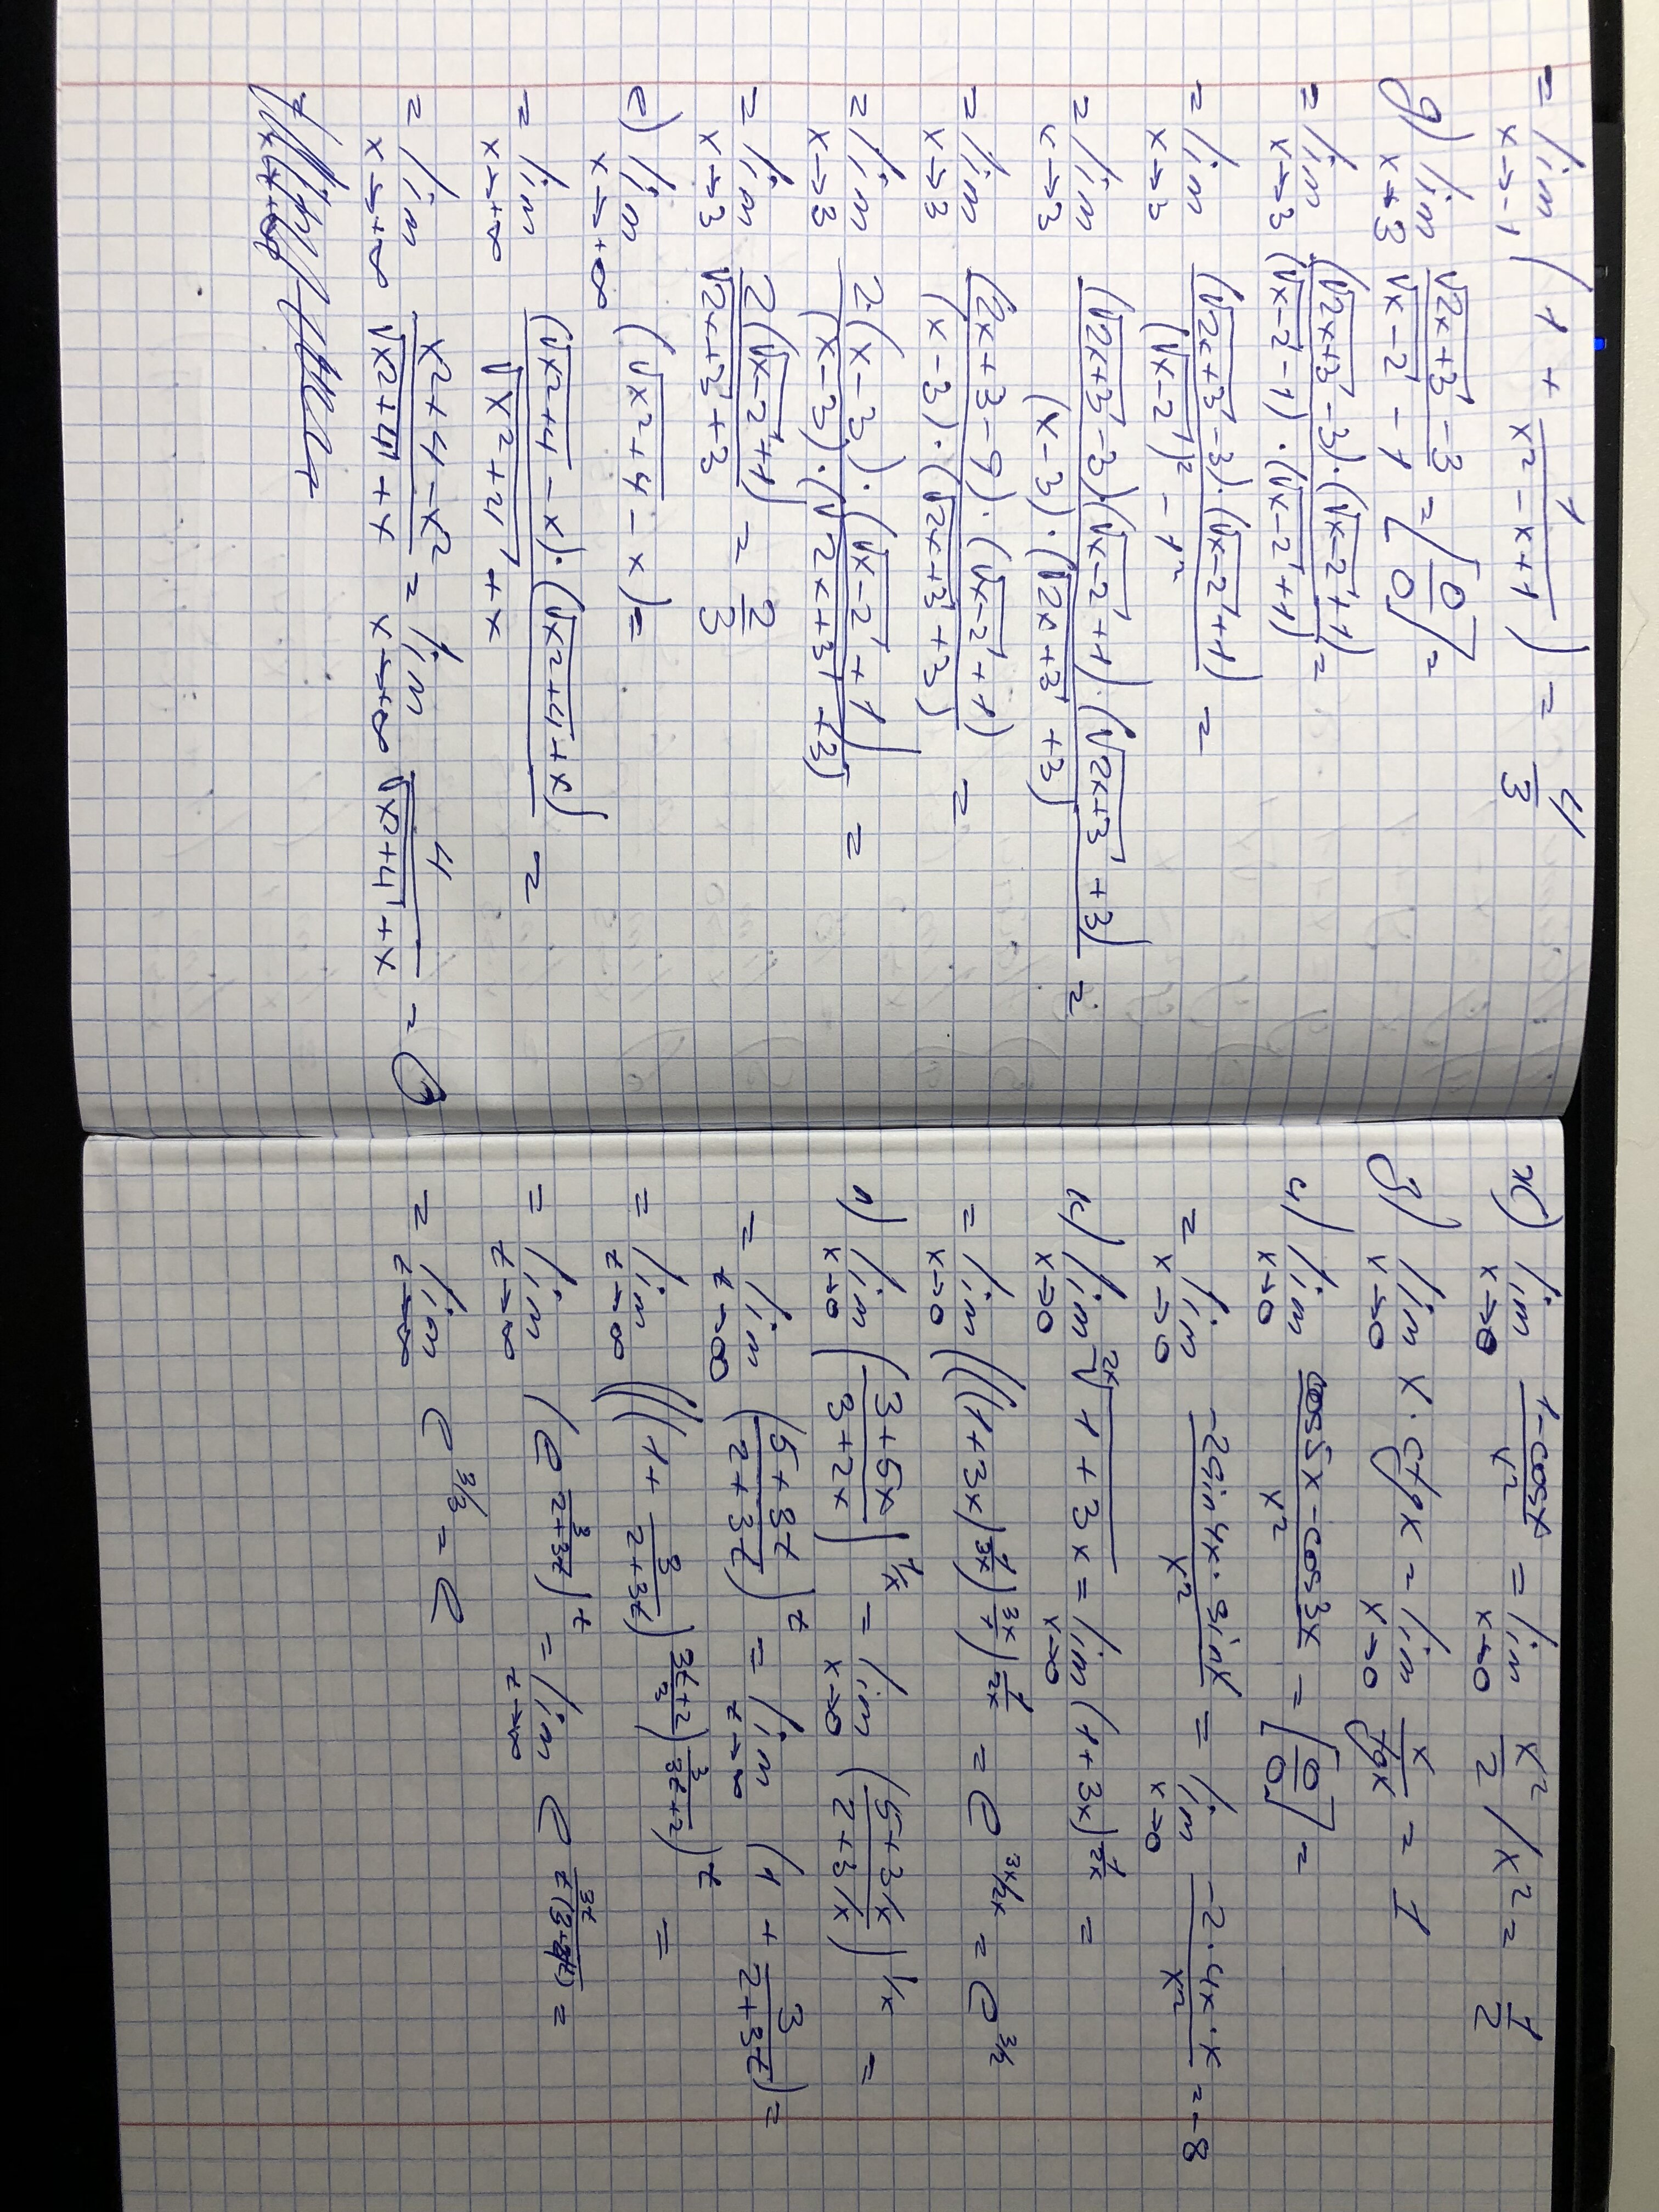 = lim x→-1 (1 + 1/(x² - x + 1)) = 4/3
g) lim x→3 (√(2x+3) - 3)/(√(x-2) - 1) = [0/0] =
= lim x→3 ((√(2x+3) - 3)·(√(x-2) + 1))/((√(x-2) - 1)·(√(x-2) + 1)) =
= lim x→3 ((√(2x+3) - 3)·(√(x-2) + 1))/((√(x-2))² - 1²) =
= lim x→3 ((√(2x+3) - 3)(√(x-2) + 1)·(√(2x+3) + 3))/((x - 3)·(√(2x+3) + 3)) =
= lim x→3 ((2x + 3 - 9)·(√(x-2) + 1))/((x - 3)·(√(2x+3) + 3)) =
= lim x→3 (2·(x - 3)·(√(x-2) + 1))/((x - 3)·(√(2x+3) + 3)) =
= lim x→3 (2(√(x-2) + 1))/(√(2x+3) + 3) = 2/3
e) lim x→+∞ (√(x²+4) - x) =
= lim x→+∞ ((√(x²+4) - x)·(√(x²+4) + x))/(√(x²+4) + x) =
= lim x→+∞ (x² + 4 - x²)/(√(x²+4) + x) = lim x→+∞ 4/(√(x²+4) + x) = 0
ж) lim x→0 (1-cosx)/x² = lim x→0 x²/2 / x² = 1/2
з) lim x→0 x·ctgx = lim x→0 x/tgx = 1
и) lim x→0 (cos5x - cos3x)/x² = [0/0] =
= lim x→0 (-2sin4x·sinx)/x² = lim x→0 (-2·4x·x)/x² = -8
к) lim x→0 ²ˣ√(1 + 3x) = lim x→0 (1 + 3x)^(1/2x) =
= lim x→0 (((1 + 3x)^(1/3x))^(3x/1))^(1/2x) = e^(3x/2x) = e^(3/2)
л) lim x→0 ((3+5x)/(3+2x))^(1/x) = lim x→0 ((5+3/x)/(2+3/x))^(1/x) =
= lim t→∞ ((5+3t)/(2+3t))^t = lim t→∞ (1 + 3/(2+3t)) =
= lim t→∞ (((1 + 3/(2+3t))^((3t+2)/3))^(3/(3t+2)))^t =
= lim t→∞ (e^(3/(2+3t)))^t = lim t→∞ e^(3t/ =
= lim t→∞ e^(3/3) = e